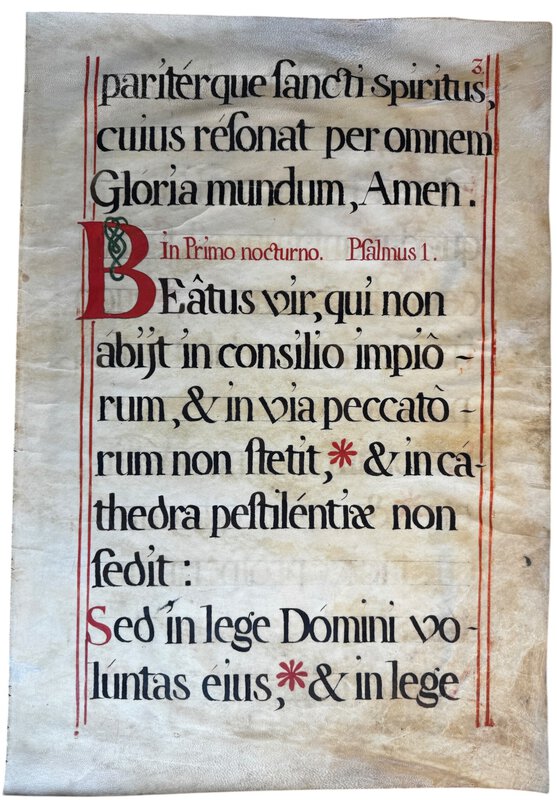 3.
paritérque ſancti spiritus,
cuius réſonat per omnem
Glória mundum, Amen.
in Primo nocturno. Pſalmus 1.
BEâtus vir, qui non
ábijt in consilio impiô-
rum, & in via peccatò-
rum non ſtetit,* & in cá-
thedra peſtiléntiæ non
ſedit:
Sed in lege Dómini vo-
lúntas éius,* & in lege